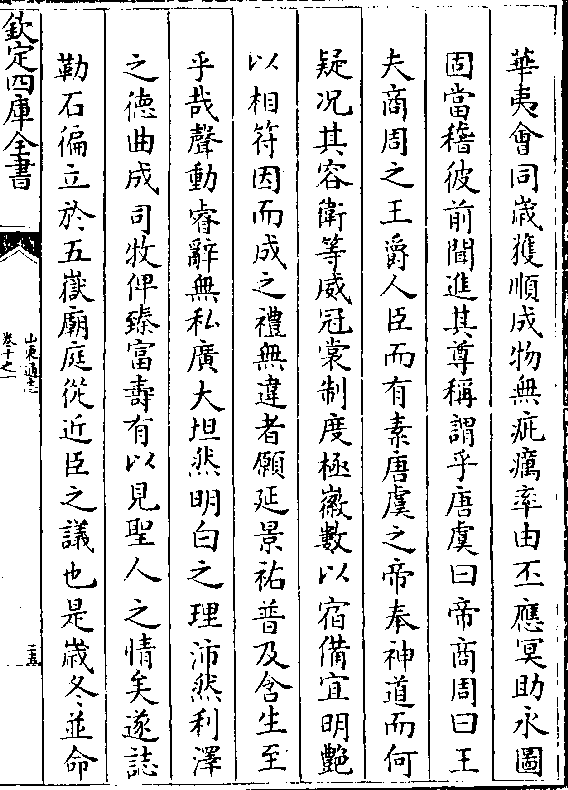 華夷會同歳獲順成物無疵癘率由丕應冥助永圖
固當稽彼前聞進其尊稱謂乎唐虞曰帝商周曰王
夫商周之王爵人臣而有素唐虞之帝奉神道而何
疑况其容衛等威冠裳制度極徽數以宿備宜明艶
以相符因而成之禮無違者願延景祐普及含生至
乎哉聲動睿辭無私廣大坦然明白之理沛然利澤
之徳曲成司牧俾臻富壽有以見聖人之情矣遂誌
勒石徧立於五嶽廟庭從近臣之議也是歳冬並命
欽定四庫全書
山東通志
卷十一之
三五